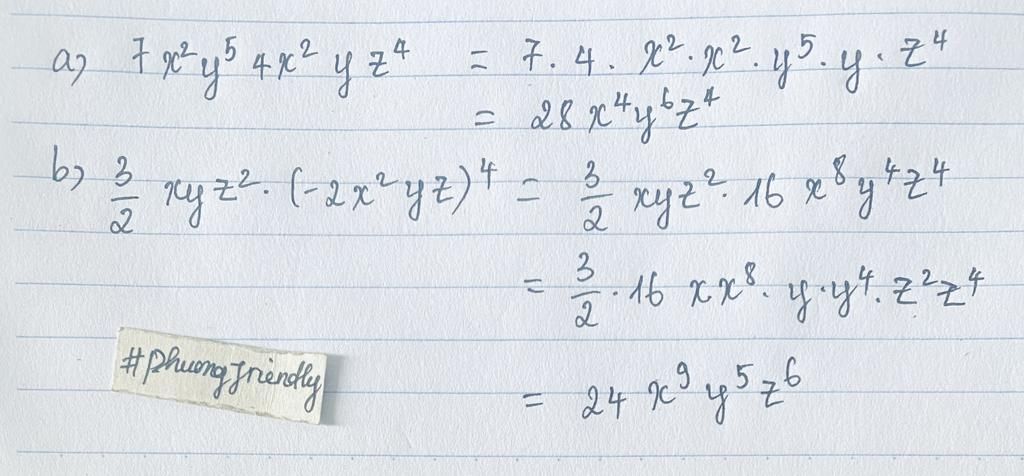 a) 7x²y⁵ 4x²yz⁴ = 7 . 4 . x² . x² . y⁵ . y . z⁴
= 28x⁴y⁶z⁴
b) 3/2 xyz² . (-2x²yz)⁴ = 3/2 xyz² . 16 x⁸y⁴z⁴
= 3/2 . 16 xx⁸ . y . y⁴ . z²z⁴
= 24 x⁹y⁵z⁶
#phuongfriendly